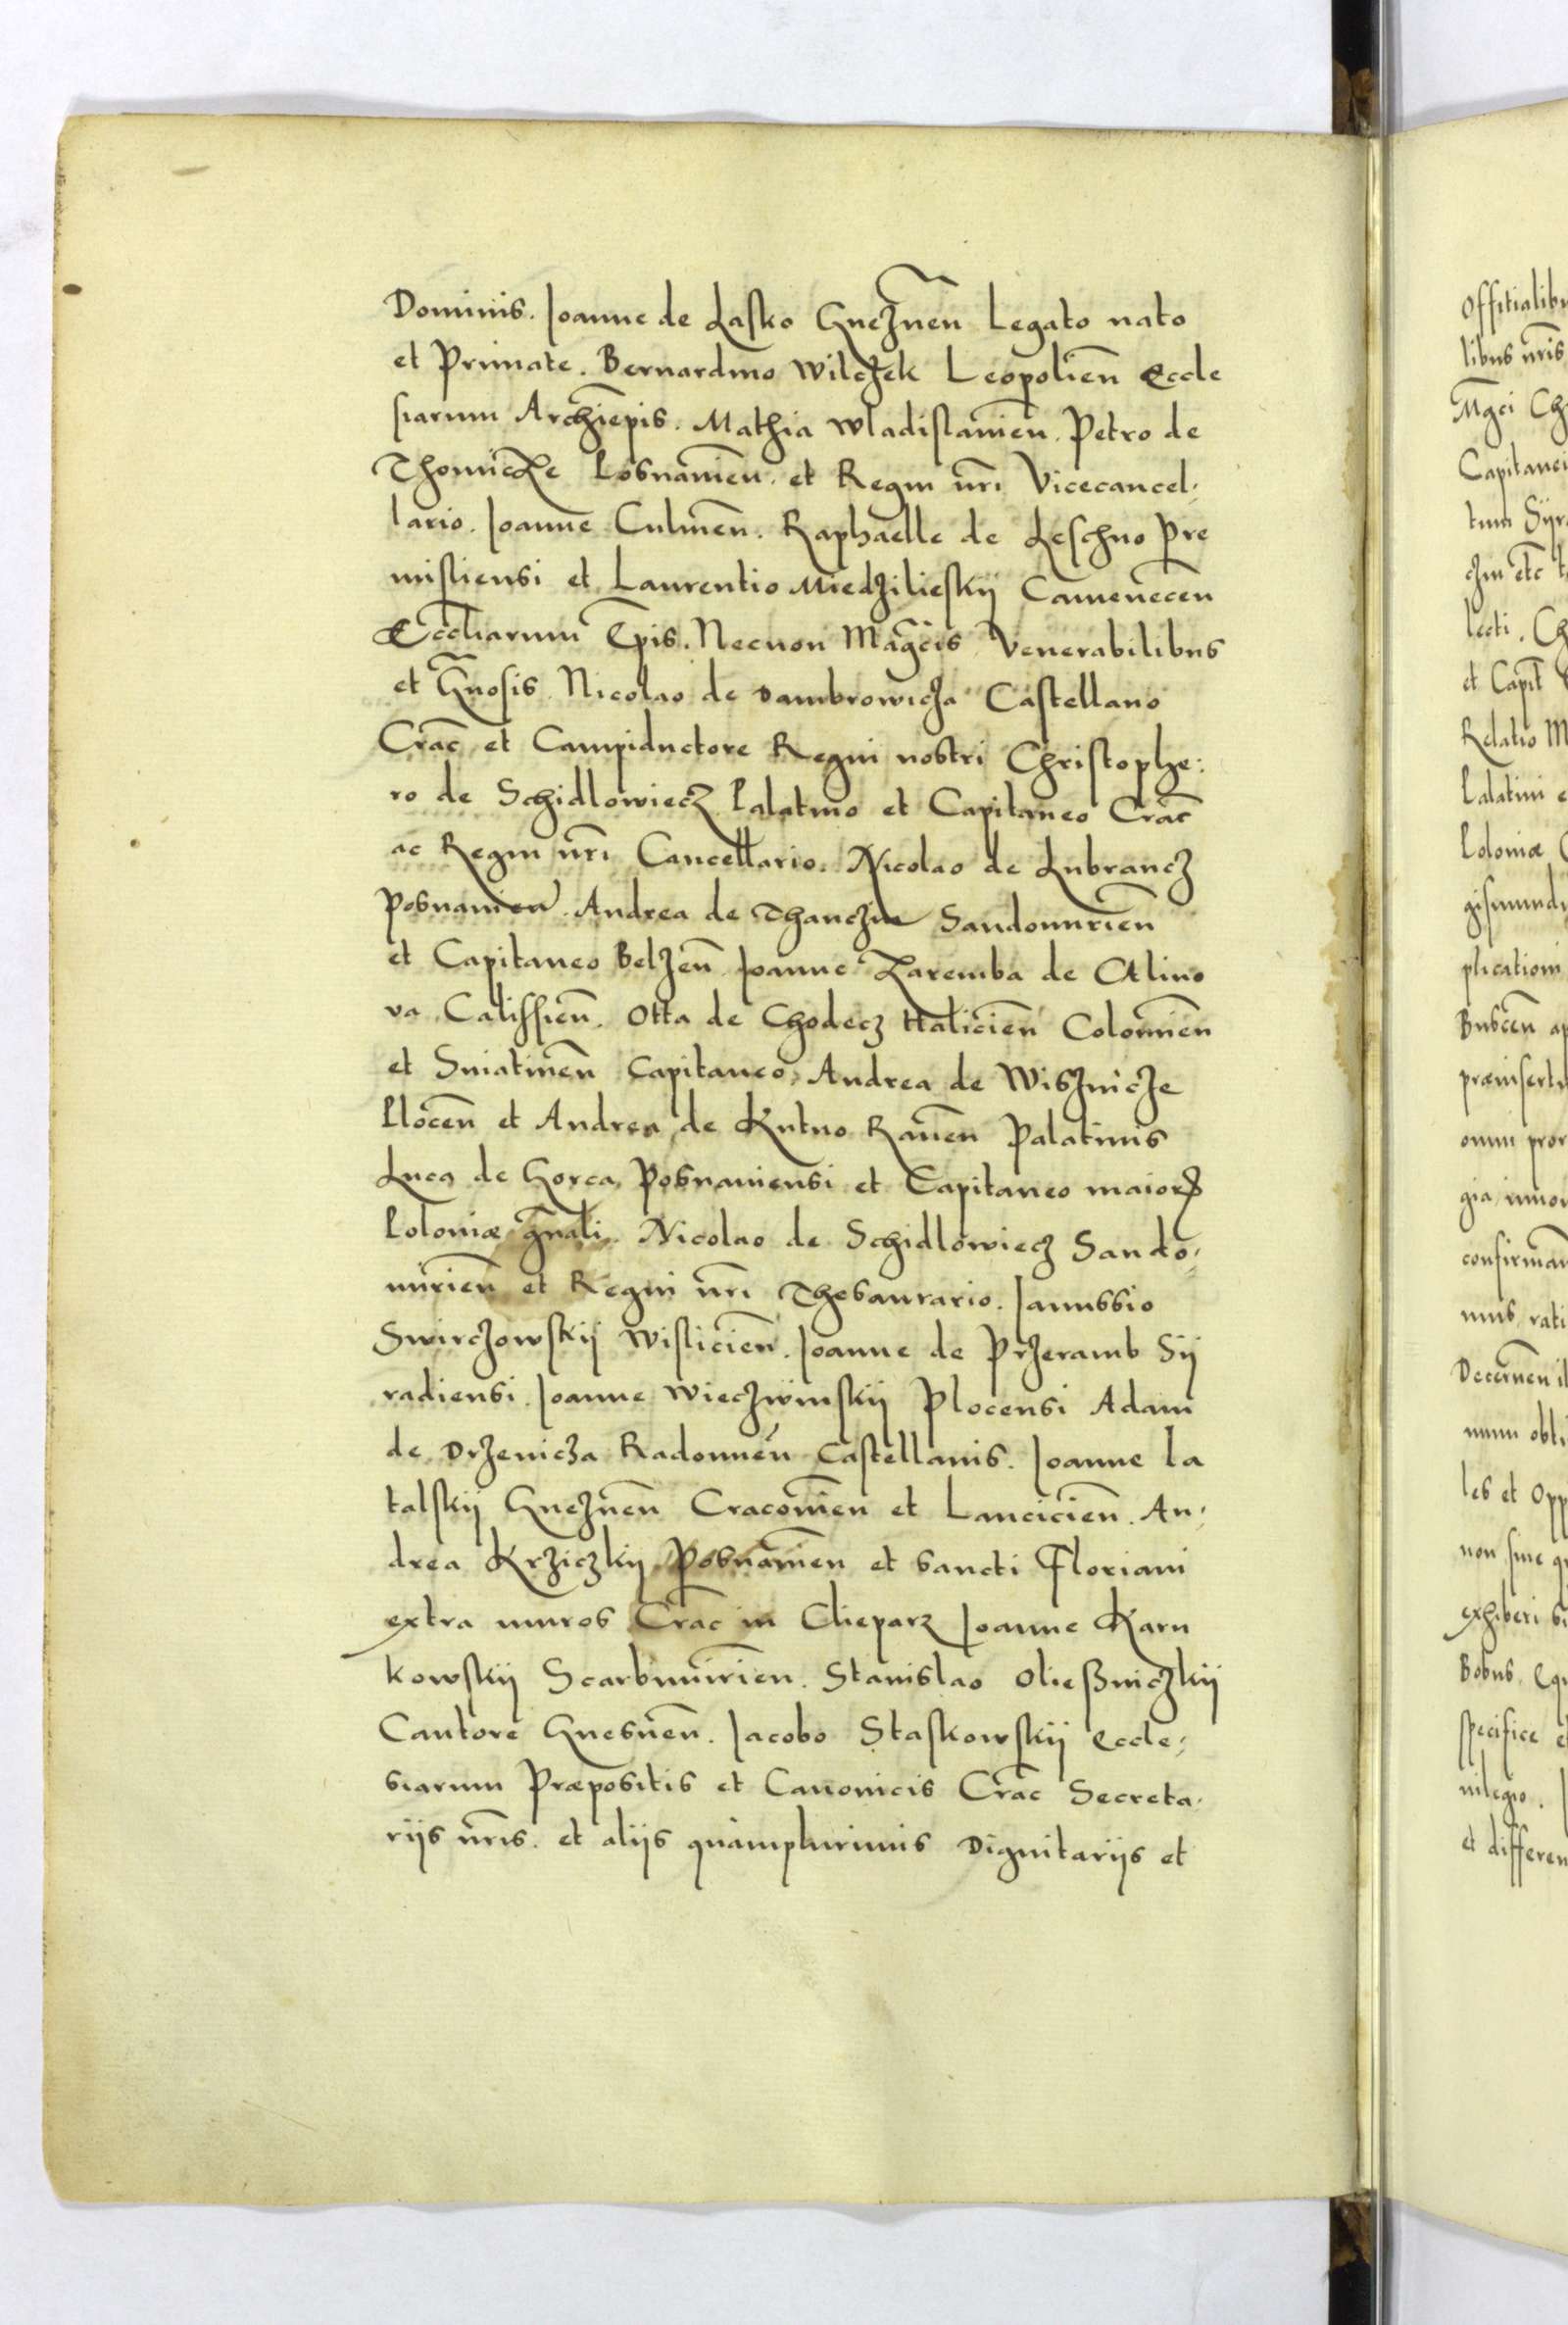 Dominis. Joanne de Lasko Gneznen̄ Legato nato
et Primate. Bernardino Wilczek Leopolien̄ Eccle
siarum Archiēpis. Mathia Wladislauien̄. Petro de
Thomicze Posnanien̄. et Regni nr̄i Vicecancel-
lario. Joanne Culmen̄. Raphaelle de Leschno Pre
misliensi et Laurentio Miedzilieskij Camenecen̄
Eccl̄iarum Ep̄is. Necnon Magc̄is Venerabilibus
et Gn̄osis. Nicolao de Dambrowicza Castellano
Crac̄ et Campiductore Regni nostri Christophe:
ro de Schidlowiecz Palatino et Capitaneo Crac̄
ac Regni nr̄i Cancellario. Nicolao de Lubrancz
Posnanien̄. Andrea de Thanczin Sandomirien̄
et Capitaneo Belzen̄ Joanne Zaremba de Calino
va Calissien̄. Otta de Chodecz Halicien̄ Colomien̄
et Sniatinen̄ Capitaneo, Andrea de Wisznicze
Plocen̄ et Andrea de Kutno Rauen̄ Palatinis
Luca de Gorca, Posnaniensi et Capitaneo maioris
Poloniæ gn̄ali. Nicolao de Schidlowiecz Sando-
mirien̄ et Regni nr̄i Thesaurario. Janussio
Swirczowskij Wislicien̄. Joanne de Przeramb Sij
radiensi. Joanne Wieczwinskij Plocensi Adam
de Drzenicza Radomien̄ Castellanis. Joanne La
talskij Gneznen̄ Cracouien̄ et Lancicien̄. An-
drea Krziczkij Posnanien̄ et Sancti Floriani
extra muros Crac̄ in Clieparz Joanne Karn
kowskij Scarbimirien̄. Stanislao Oließniczkij
Cantore Gnesnen̄. Jacobo Staskowskij Eccle-
siarum Præpositis et Canonicis Crac̄ Secreta-
rijs nr̄is. et alijs quamplurimis Dignitarijs et